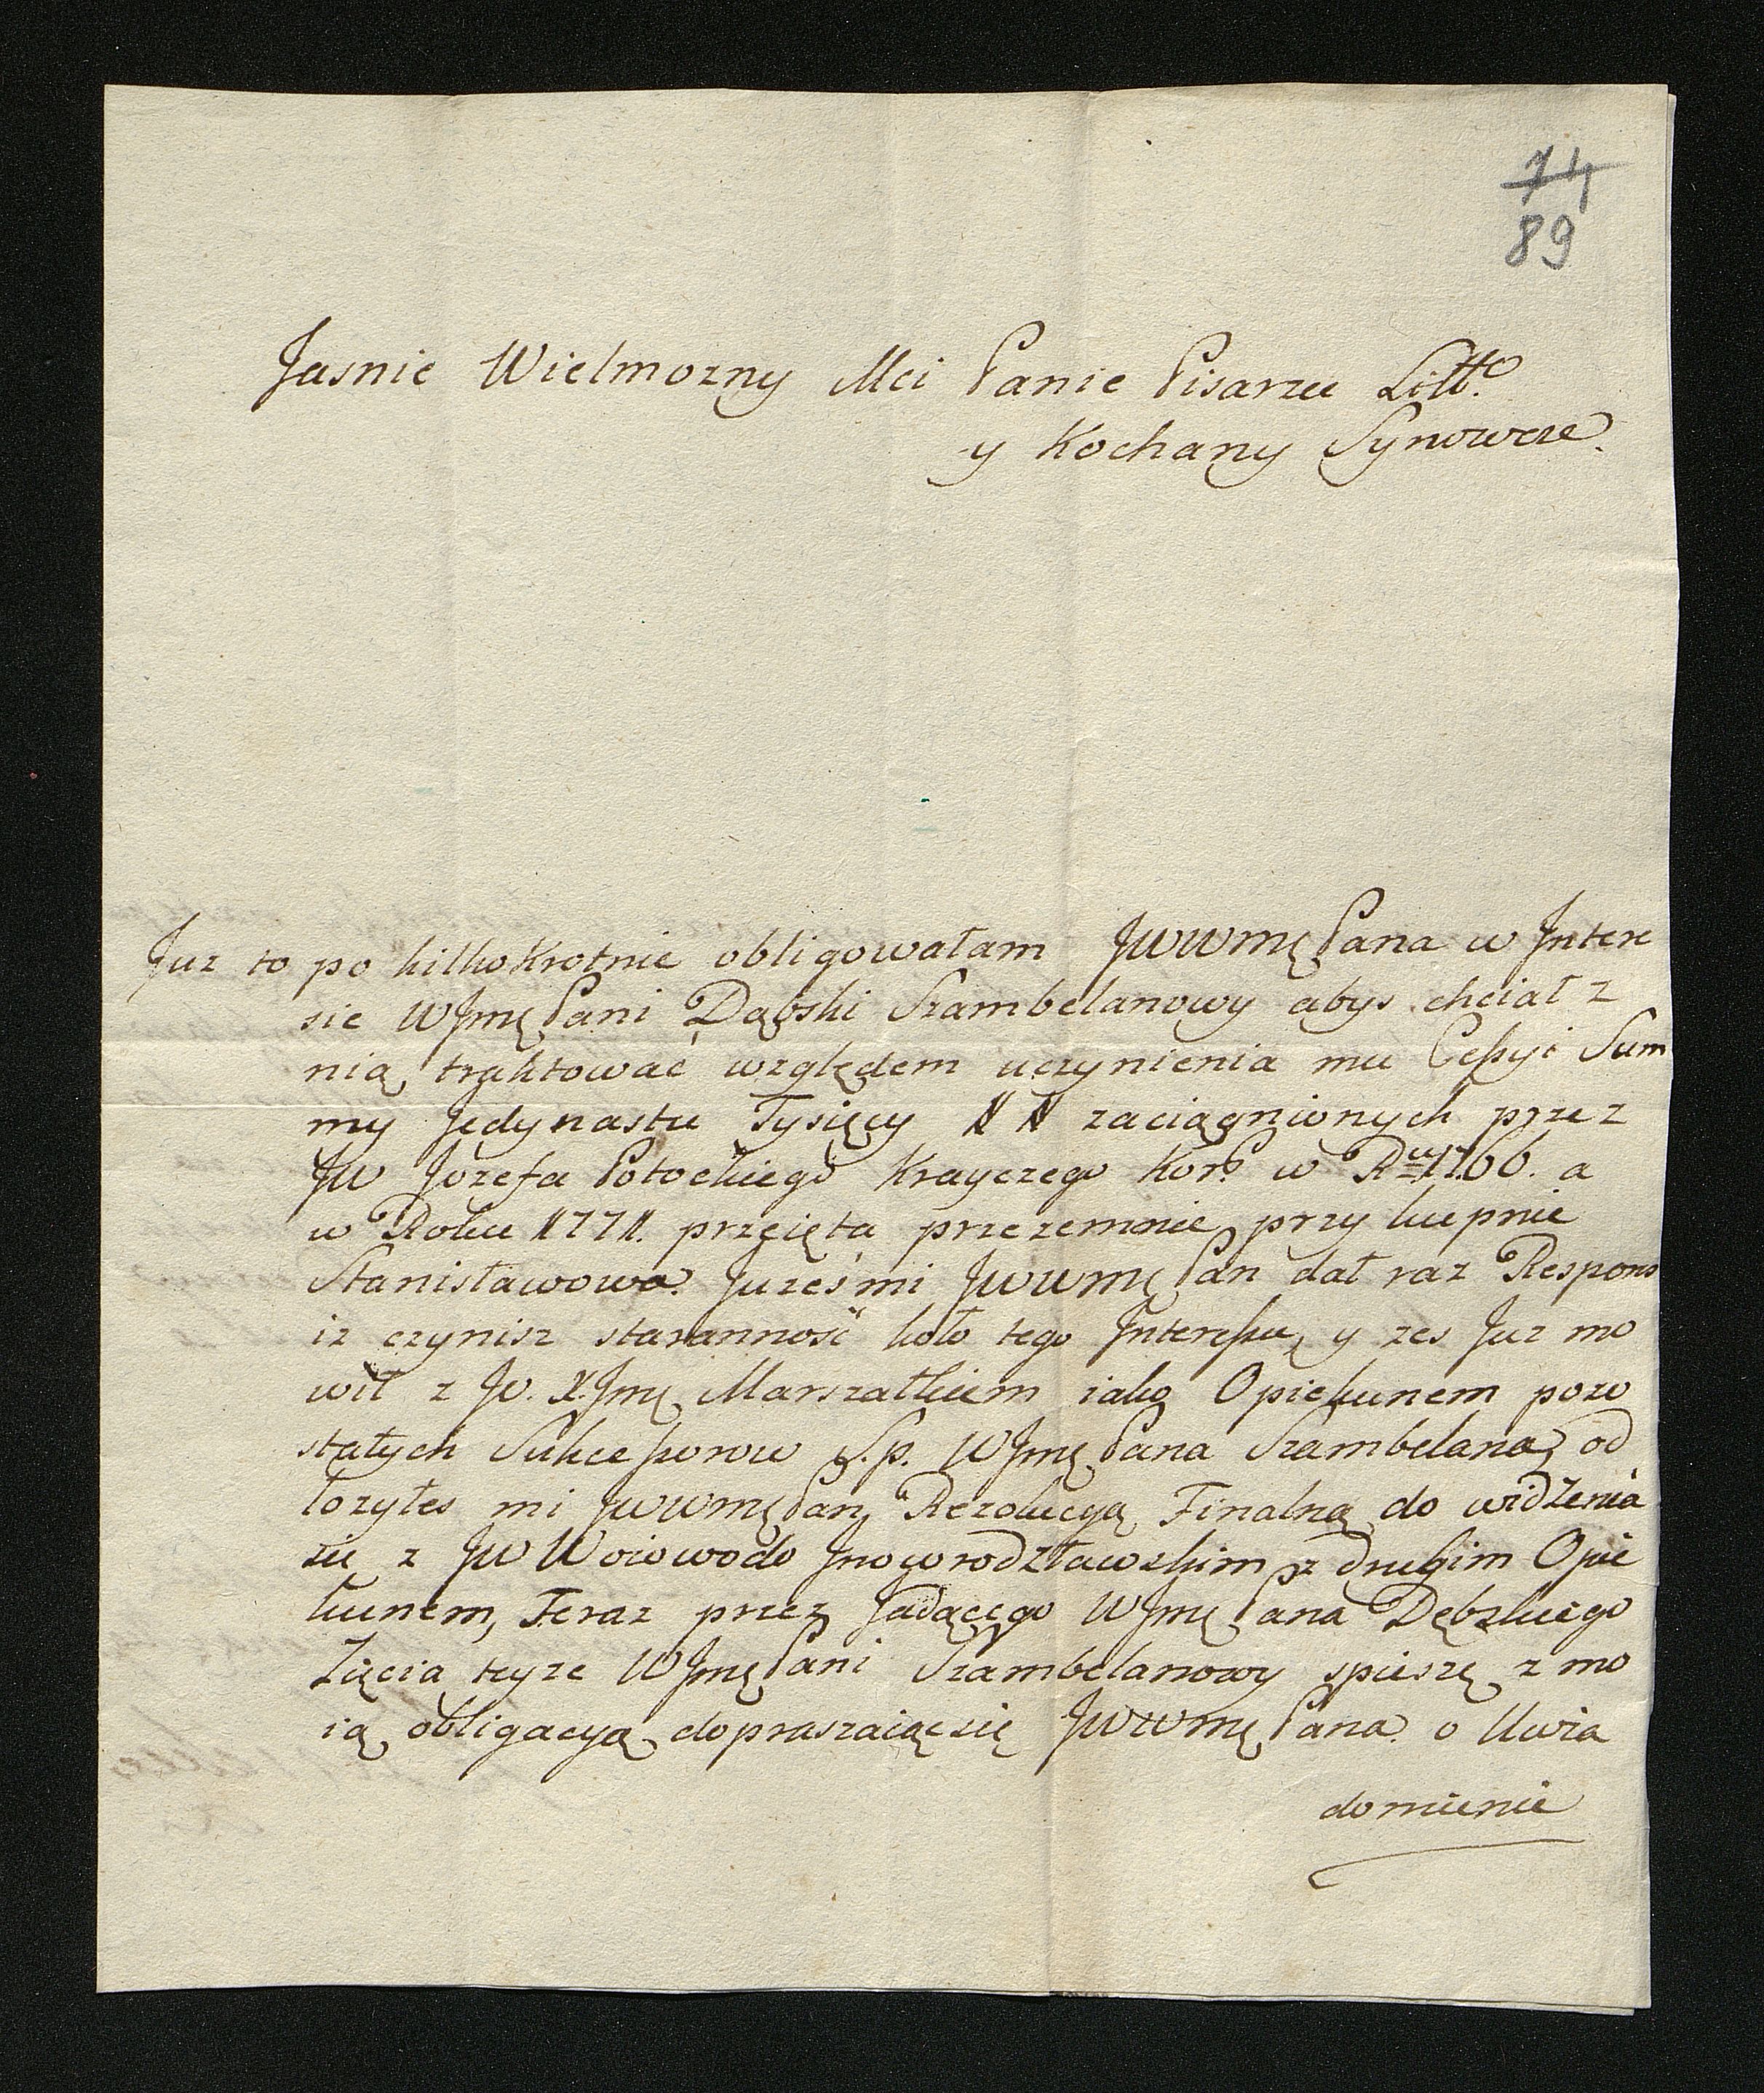 74
89
Jasnie Wielmozny Mci Panie Pisarzu Litt:o
y Kochany Synowcze.
Juz to po kilkokrotnie obligowałam JWWmę Pana w Jntere
sie WJmę Pani Dąbski Szambelanowy abys chciał z
nią traktować względem uczynienia mu Ceſsyi Sum
my Jedynastu Tysięcy # # zaciągnionych przez
JW Jozefa Potockiego Krayczego Kor: w Ru 1766. a
w Roku 1771. przęięta przezemnie przy kupnie
Stanisławowa. Jużeś mi JWWmę Pan dał raz Respons
iz czynisz staranność koło tego Jntereſsu, y zes Juz mo
wił z Jo. X. Jmę Marszałkiem iako Opiekunem pozo
stałych Sukceſsorow S. p. WJmę Pana Szambelana, od
łozyłes mi JWWmę Pan Rezolucyą Finalną do widzenia
się z JW Woiewodo Jnoworodzławskim z drugim Opie
kunem, Teraz przez Jadącego WJmę Pana Dębskiego
Zięcia teyze WJmę Pani Szambelanowy spieszę z mo
ią obligacyą dopraszaiąc się JWWmę Pana o Uwia
domienie